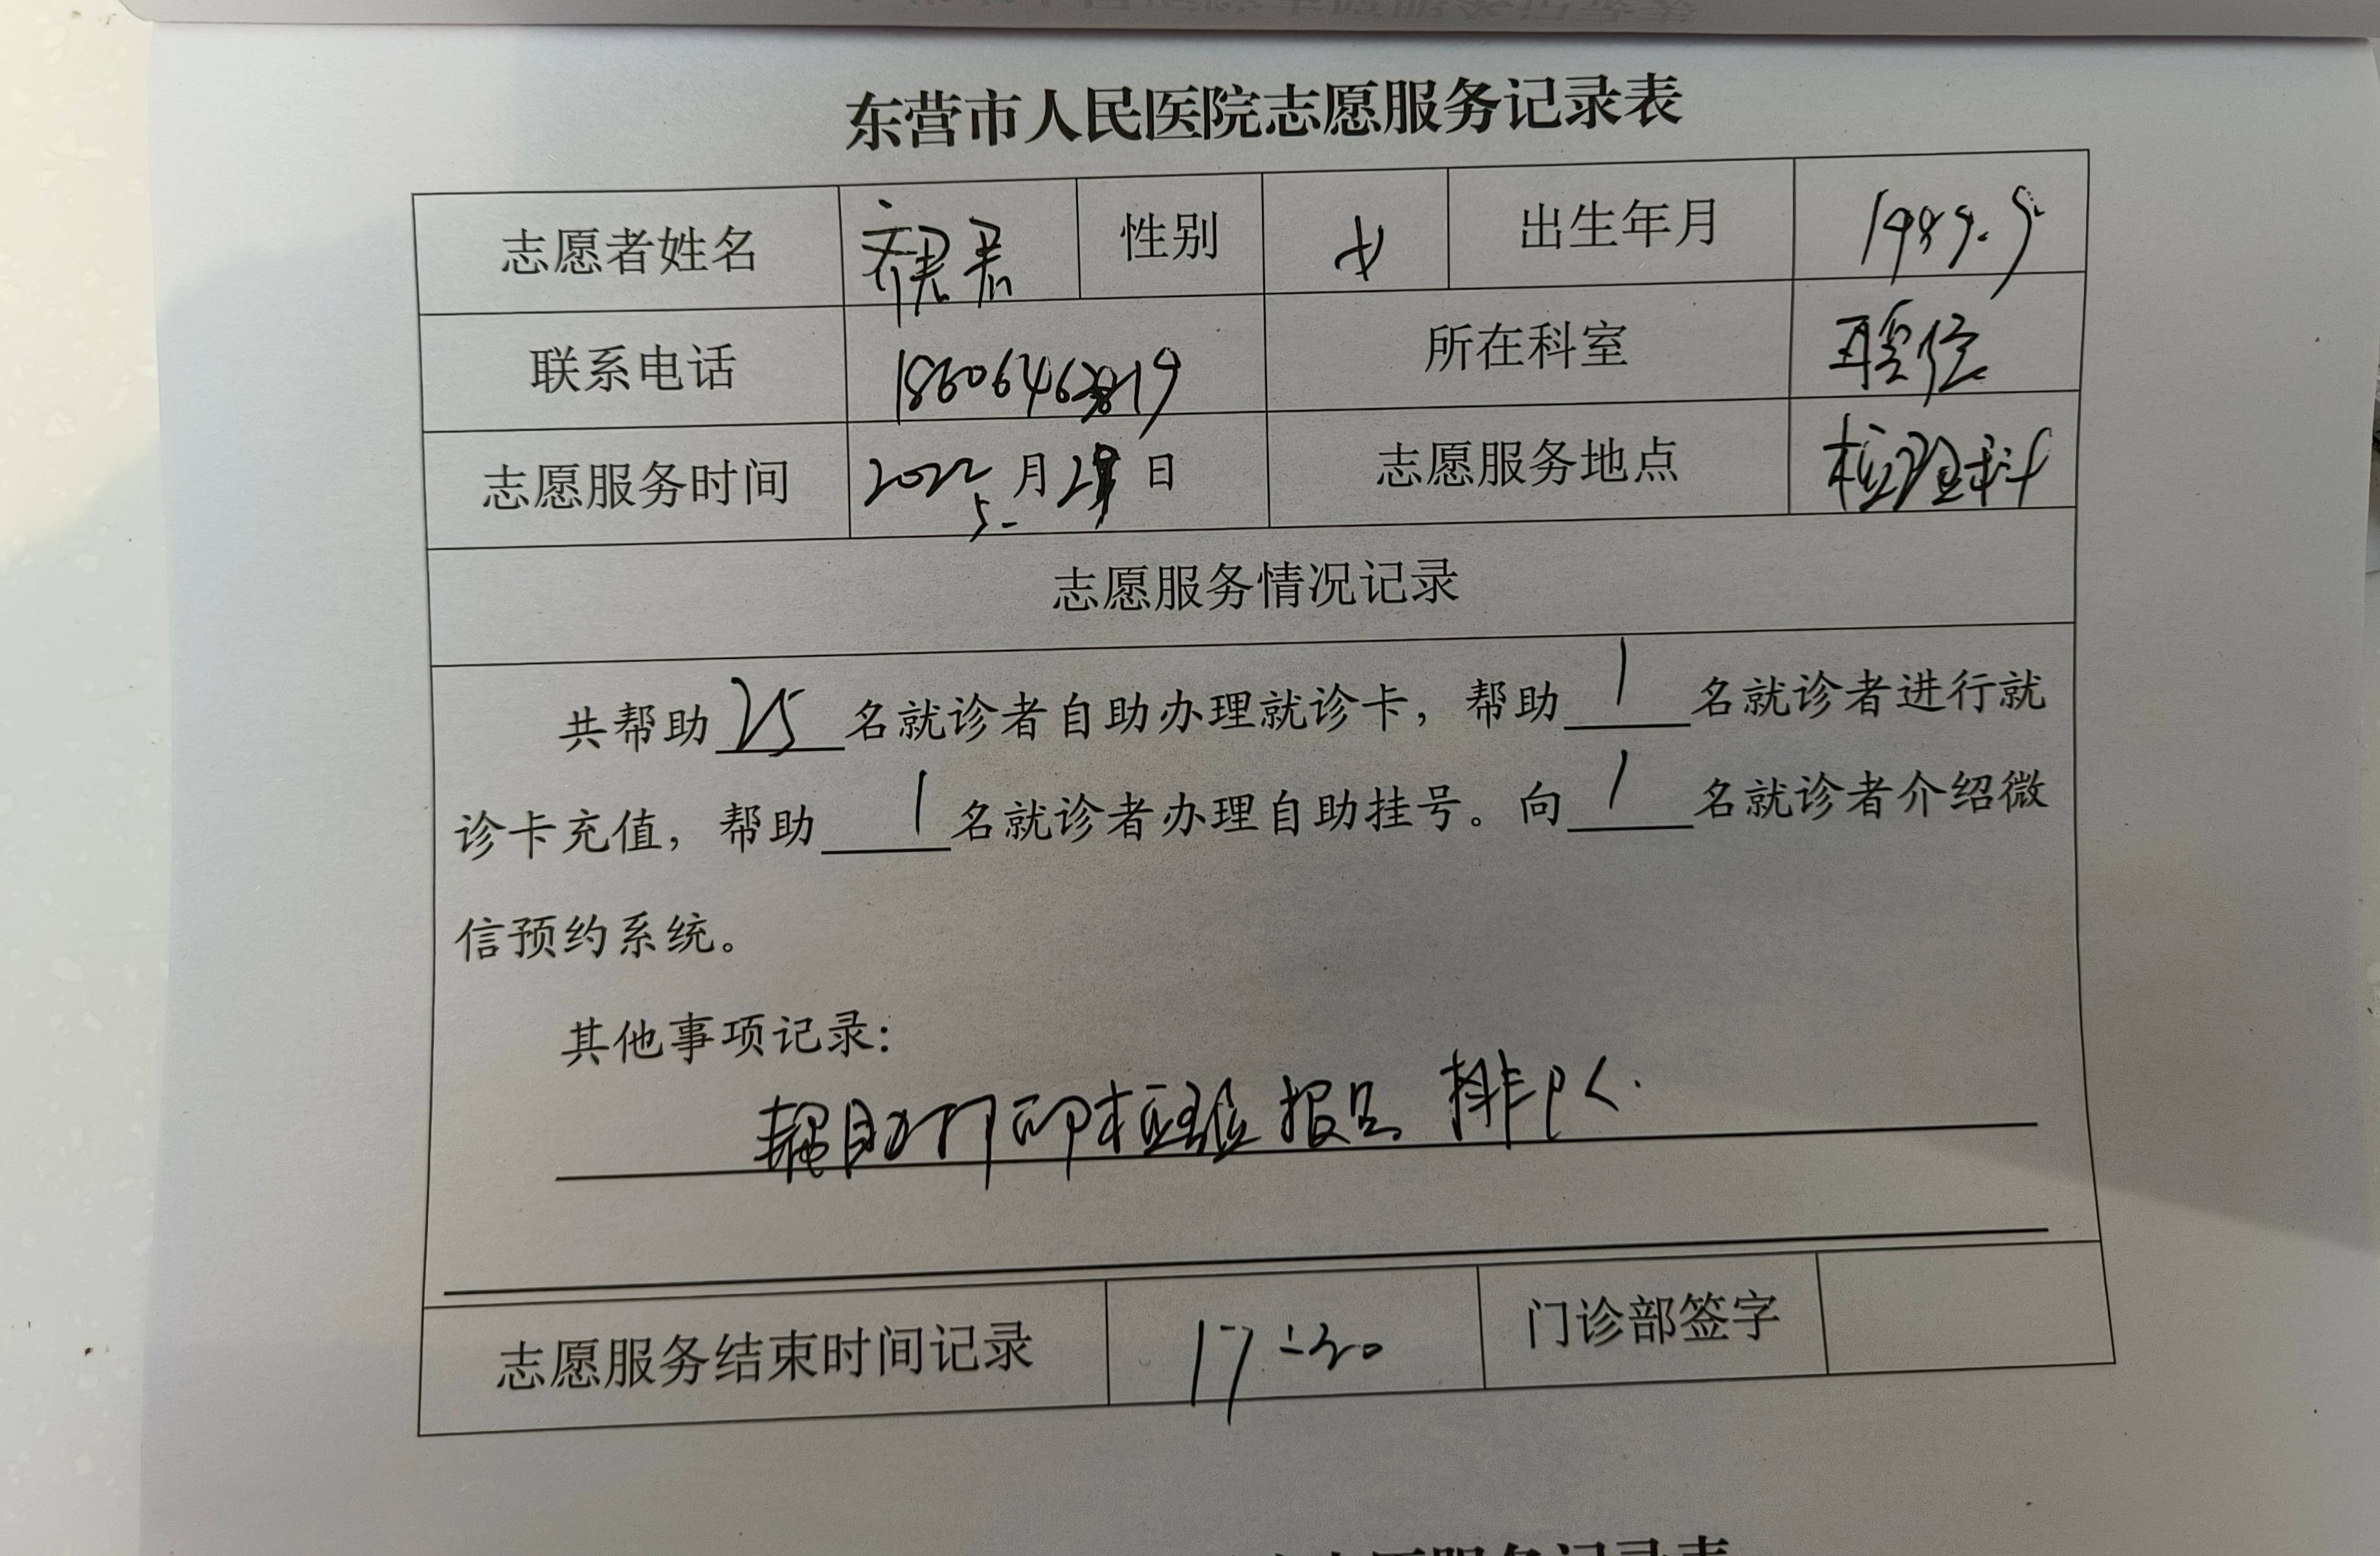 东营市人民医院志愿服务记录表
志愿者姓名 性别 女 出生年月 1989.9
联系电话 所在科室
志愿服务时间 2022 5 月 日 志愿服务地点
志愿服务情况记录
共帮助 25 名就诊者自助办理就诊卡，帮助 1 名就诊者进行就
诊卡充值，帮助 1 名就诊者办理自助挂号。向 1 名就诊者介绍微
信预约系统。
其他事项记录：
助打印 报告 排队.
志愿服务结束时间记录 17:30 门诊部签字